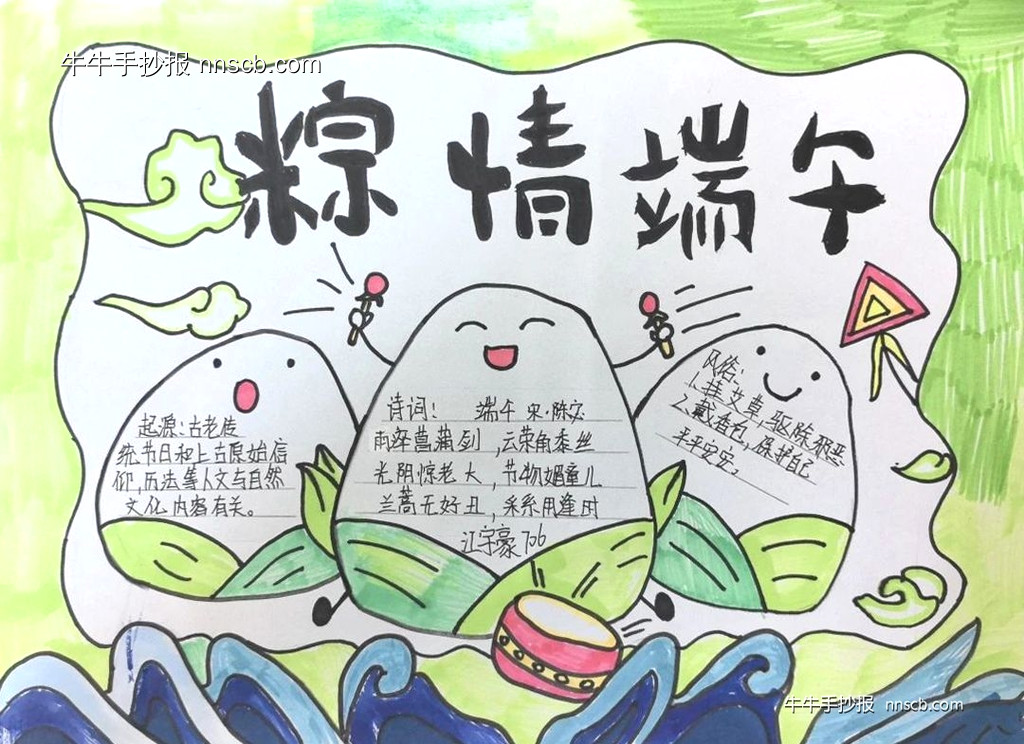 牛牛手抄报 nnscb.com
粽情端午
起源:古老传
统节日和上古原始信
仰,历法等人文与自然
文化内容有关。
诗词! 端午 宋·陈
雨 菖蒲剑,云荣角黍丝
光阴惊老大,节物媚童儿
兰蒿无好丑,采系用逢时
江宇豪 706
风俗:
1.挂艾草,驱除邪恶
2.戴香包,保护自己
平平安安。
牛牛手抄报 nnscb.com